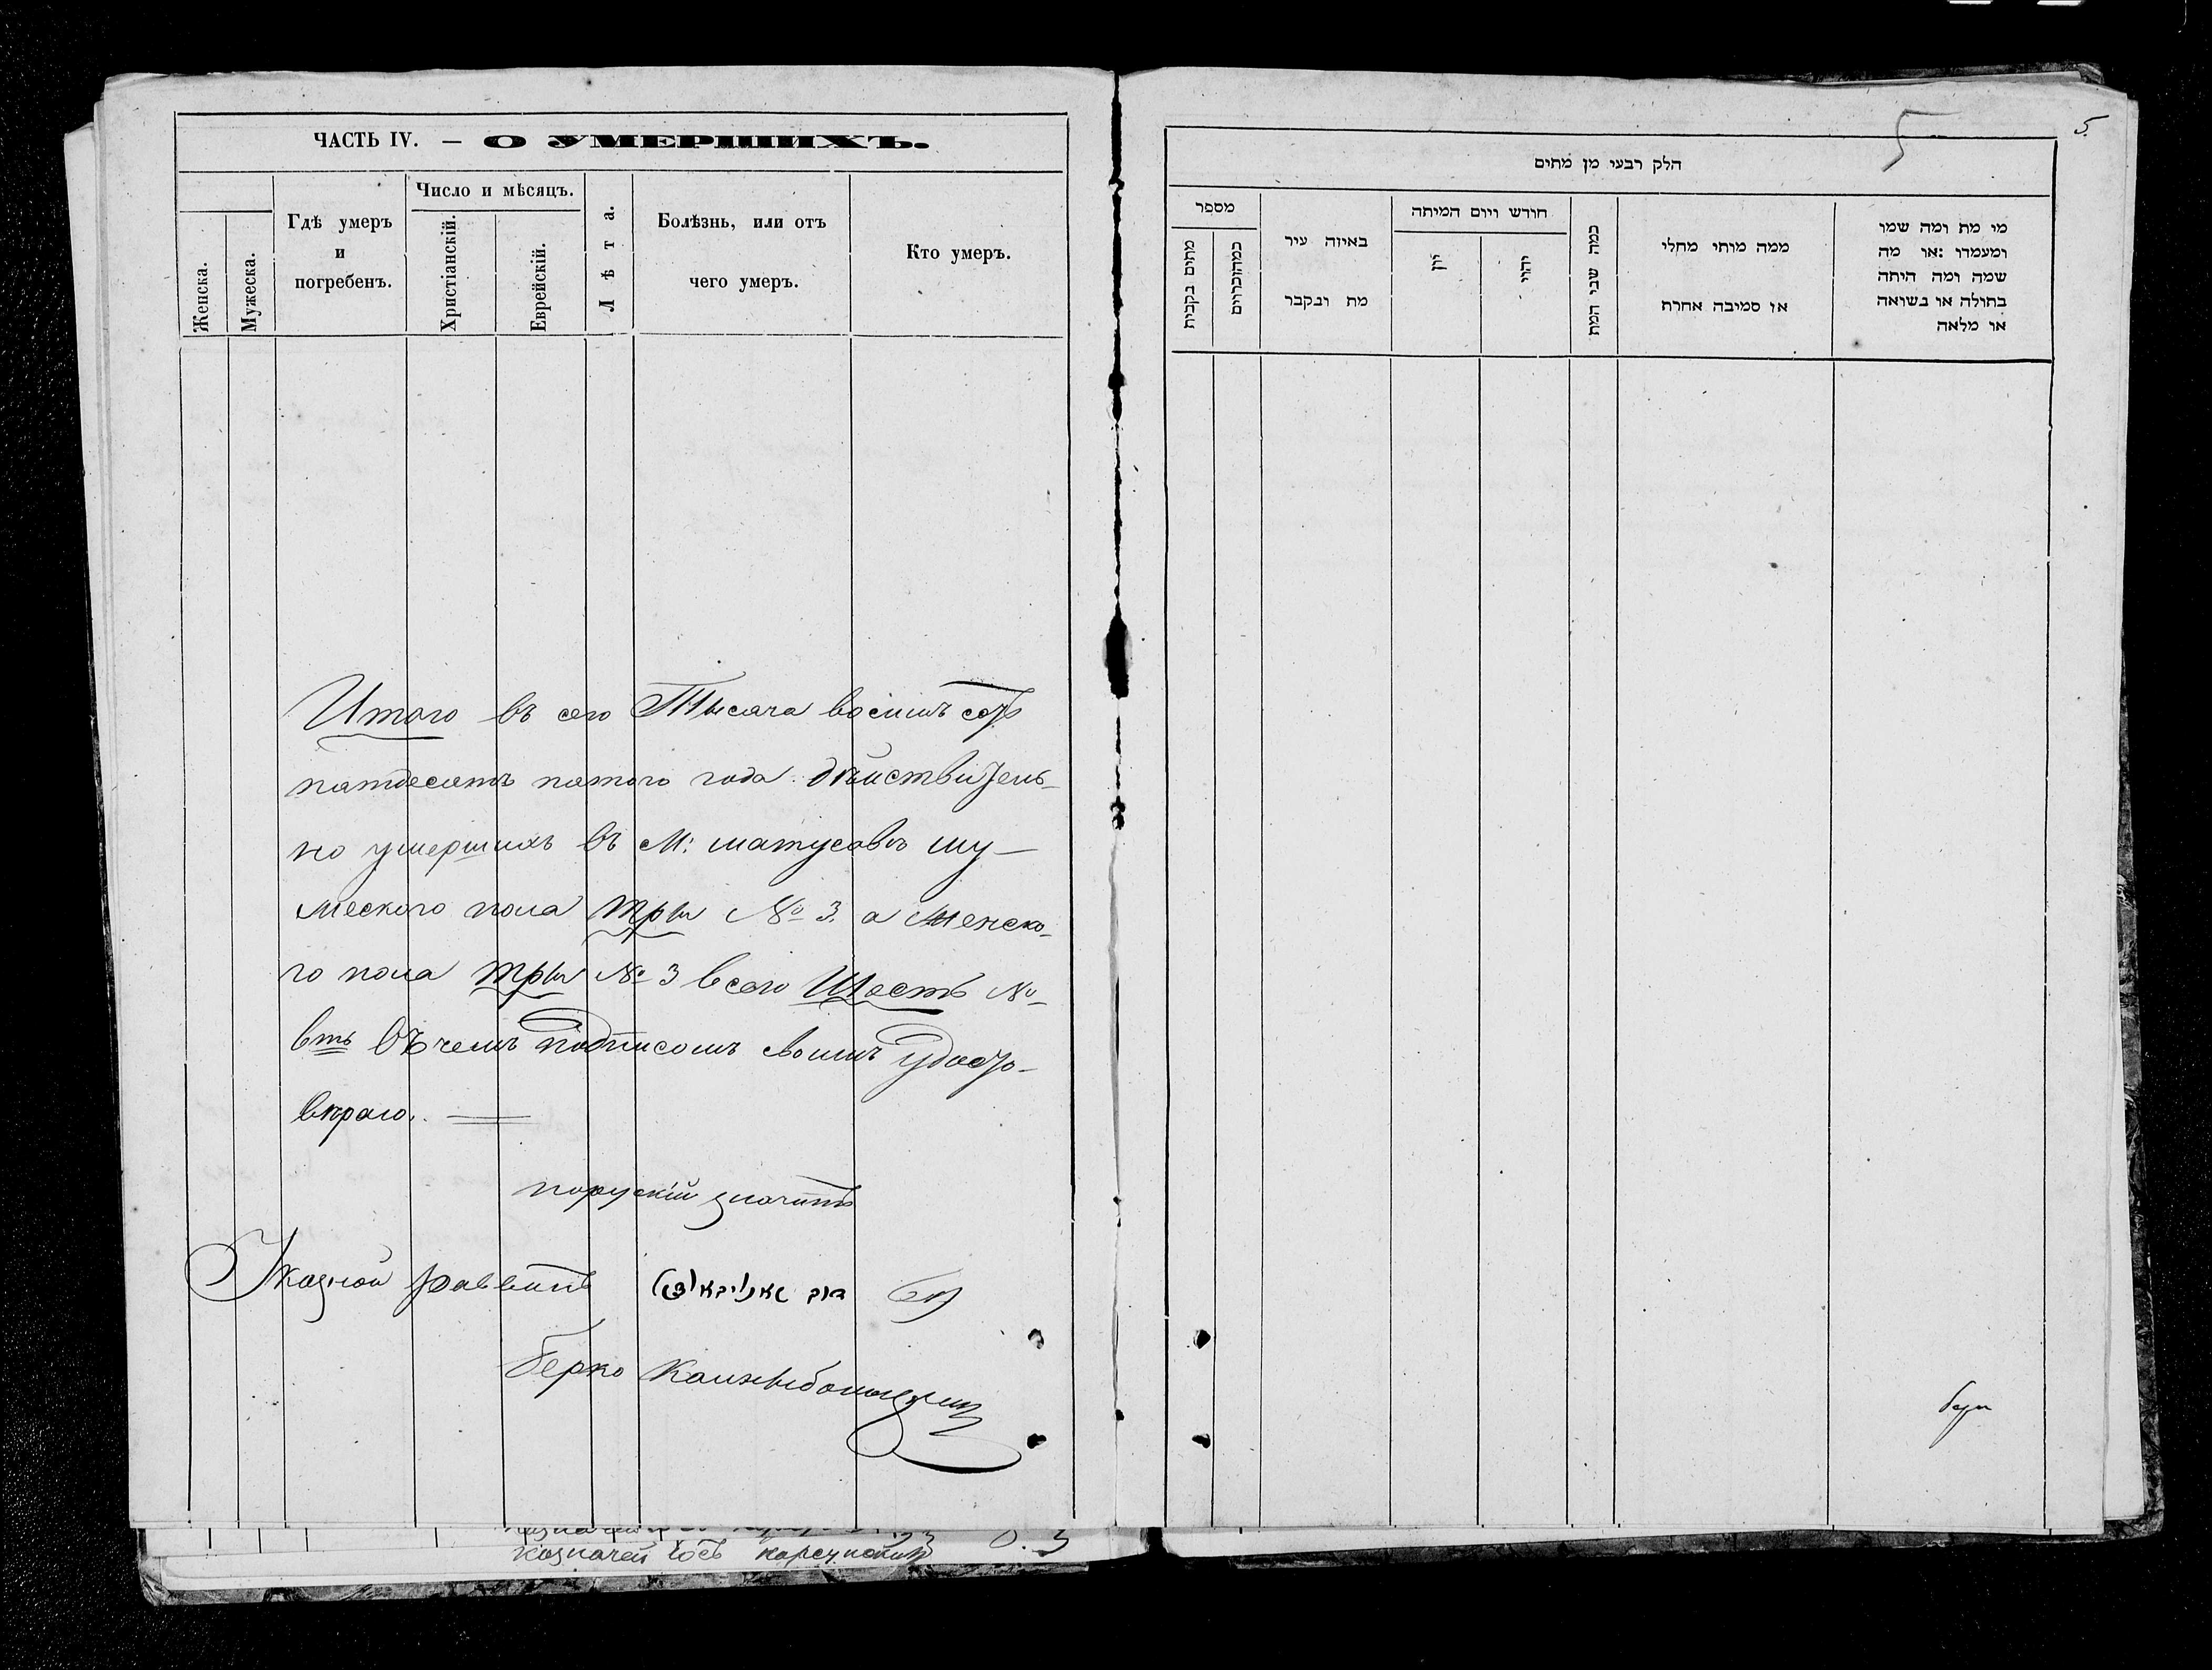 ЧАСТЬ IV. — О УМЕРШИХЪ.
Женска.
Мужеска.
Гдѣ умеръ
и
погребенъ.
Число и мѣсяцъ.
Христіанскій.
Еврейскій.
Лѣта.
Болѣзнь, или отъ
чего умеръ.
Кто умеръ.
Итого въ сего Тысяча восимъ сотъ
патдесатъ патого года дѣйствитель-
но умершихъ въ М: матусовѣ му-
жеского пола три № 3. а женско-
го пола три № 3 всего Шесть №
въ чемъ подписомъ своимъ удосто-
вѣраю.
поруский значитъ
Казной раввинъ
Берко
казначей
5
5.
חלק רבעי מן מתים
מספר
מתים בקבית
כמהזכרוים
באיזה עיר
מת ונקבר
חודש ויום המיתה
יון
יהודי
כמה שני המת
ממה מותי מחלי
או סמיבה אחרת
מי מת ומה שמו
ומעמדו :או מה
שמה ומה היתה
בתולה או נשואה
או מלאה